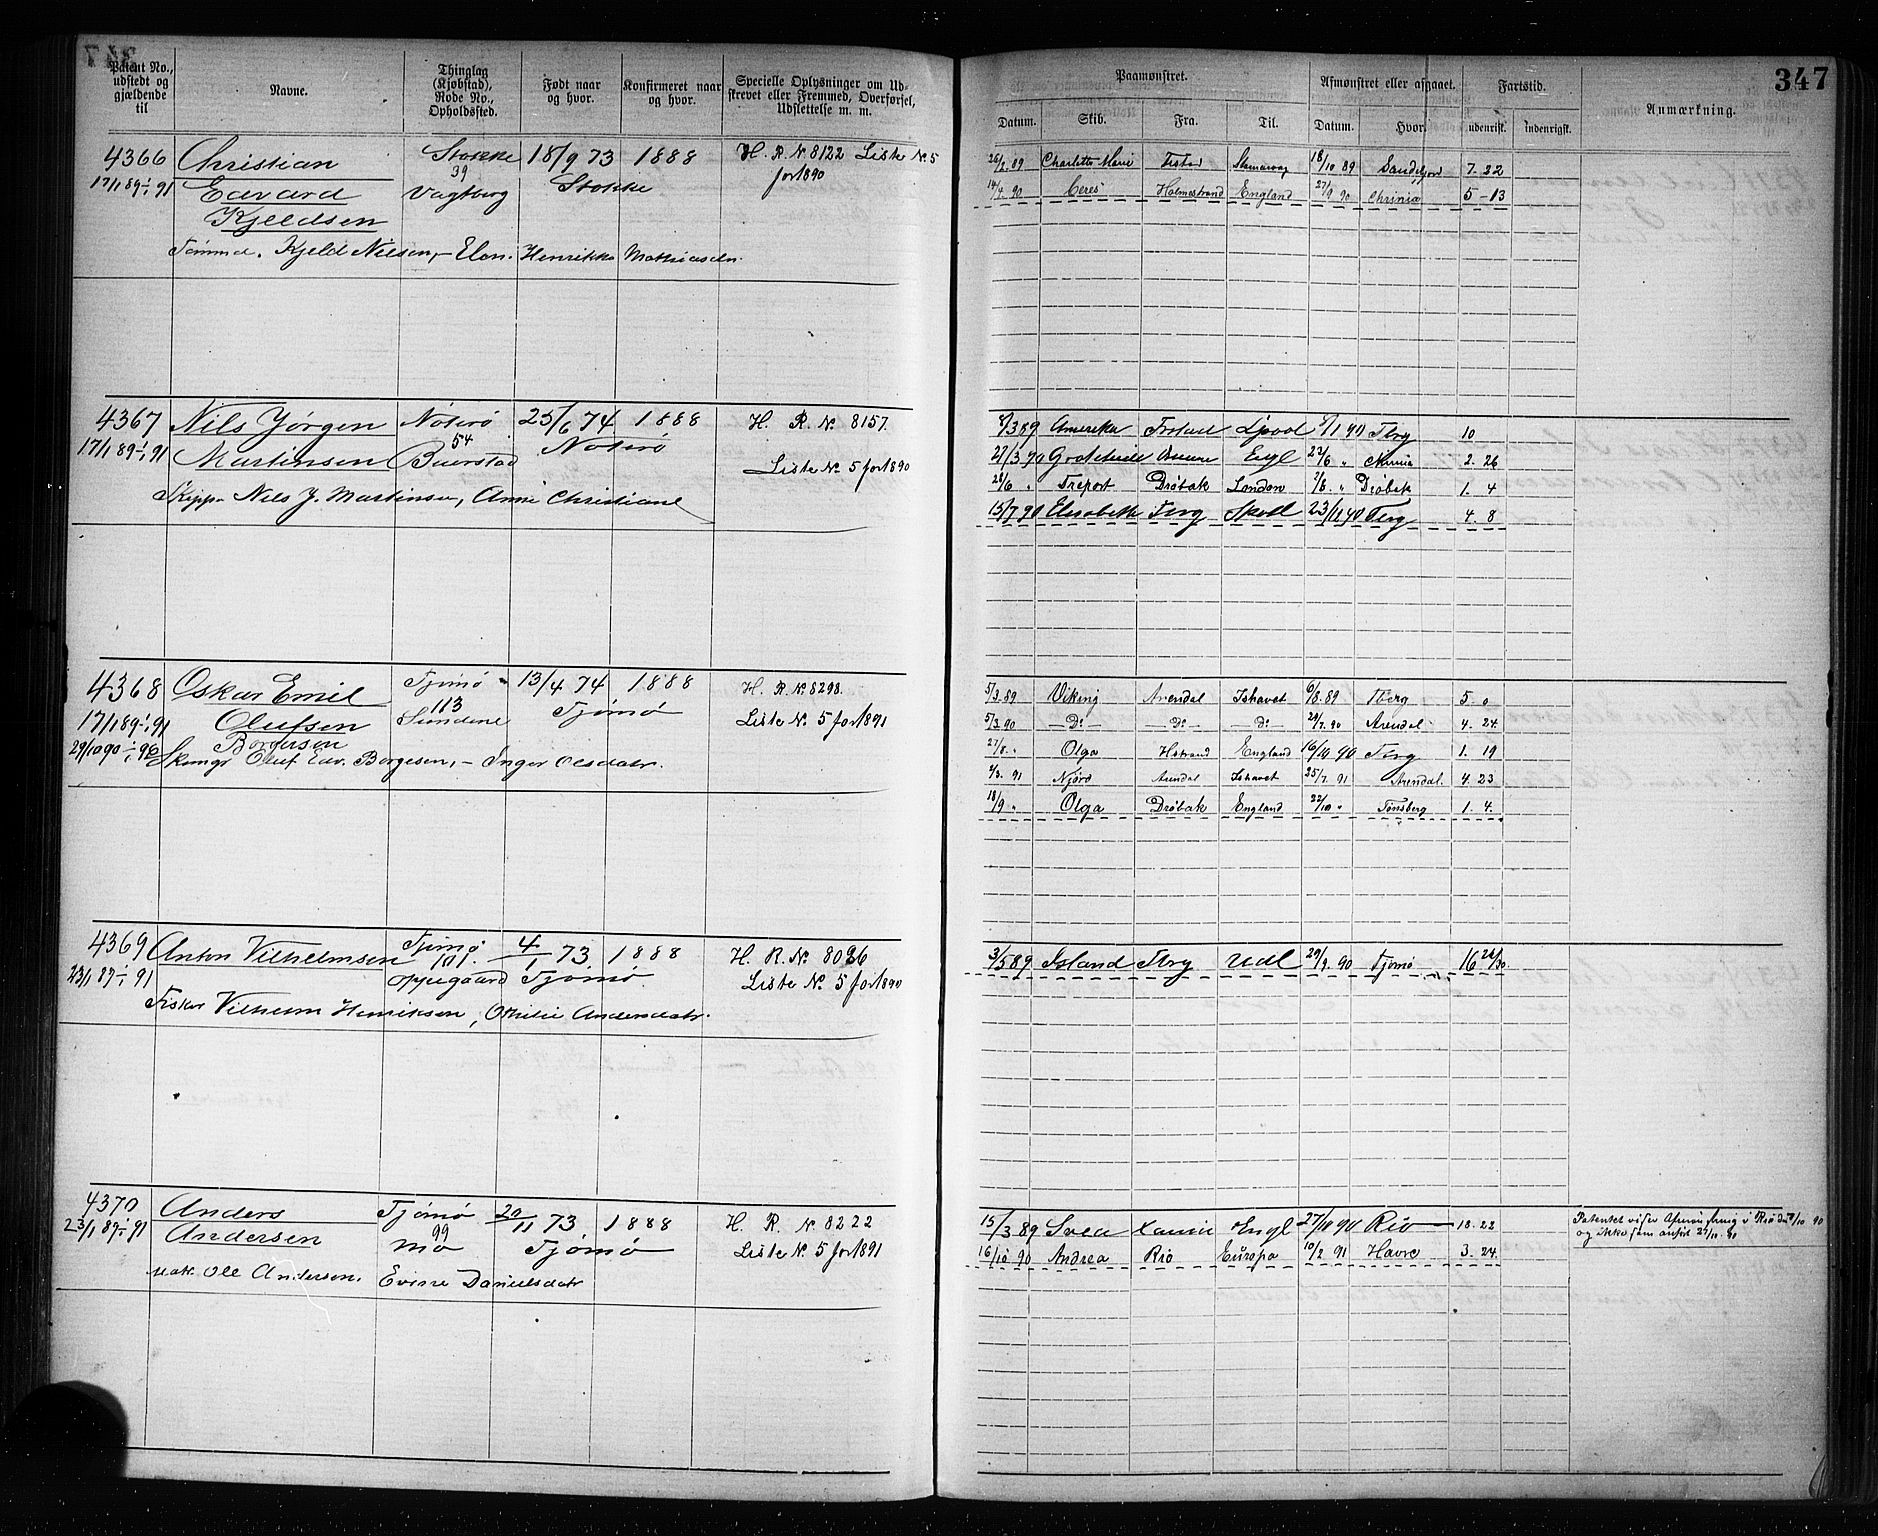 347
Patent No., udstedt og gjældende til
Navne.
Thinglag (Kjøbstad), Rode No., Opholdssted.
Født naar og hvor.
Konfirmeret naar og hvor.
Specielle Oplysninger om Udskrevet eller Fremmed, Overførsel, Udslettelse m. m.
Paamønstret.
Afmønstret eller afgaaet.
Fartstid.
Anmærkning.
Datum. Skib. Fra. Til. Datum. Hvor. udenrigst. indenrigst.
4366 Christian Stokke 18/9 73 1888 H. R. N. 8122 Liste N. 5
17/1 89 ÷ 1/1 91 Edvard 39 Vagtberg Stokke for 1890
Kjeldsen
Kjeld Nilsen, – Henrikke Mathiasdtr.
26/2 89 Charlotte Marie 18/10 89 Sandefjord 7. 22
90 Ceres Holmestrand England 27/9 90 Chrinia 5 – 13
4367 Nils Jørgen Nøterø 25/6 74 1888 H. R. N. 8157.
17/1 89 ÷ 1/1 91 Martinsen 54 Buerstad Nøterø Liste N. 5 for 1890
Skipp. Nils J. Martinsen, Anne Christiane
/3 89 Amerika Frstad Lpool /11 90 Tbrg 10
27/3 90 Engl 22/6 „ 2. 26
28/6 „ Treport Drøbak London 7/8 „ Drøbak 1. 4
15/7 90 Elisabeth Tbrg 23/11 90 Tbrg 4. 8
4368 Oskar Emil Tjømø 13/4 74 1888 H. R. N. 8298.
17/1 89 ÷ 1/1 91 Olufsen 113 Sundene Tjømø Liste N. 5 for 1891
29/10 90 ÷ Borgersen
Oluf Edv. Borgesen, – Inger Olsdatr.
5/3 89 Viking Arendal Ishavet 6/8 89 Tberg 5. 0
5/3 90 – Do – – Do – – Do – 29/7. 90 Arendal 4. 24
27/8 „ Olga Hstrand England 16/10 90 Tbrg 1. 19
2/3. 91 Njørd Arendal Ishavet 25/7. 91 Arendal 4. 23
18/9 „ Olga Drøbak England 22/10 „ Tønsberg 1. 4.
4369 Anton Vilhelmsen Tjømø 4/1 73 1888 H. R. N. 8036
23/1 89 ÷ 1/1 91 101. Oppegaard Tjømø Liste N. 5 for 1890
Fisker Vilhelm Henriksen, Othilie Andersdatr.
3/5 89 Island Tbrg Udl 29/9 90 Tjømø 16 26/30
4370 Anders Tjømø 20/11 73 1888 H. R. N. 8222
23/1 89 ÷ 1/1 91 Andersen 99 Mo Tjømø Liste N. 5 for 1891
Matr. Ole Andersen. Danielsdatr
15/3 89 Svea Engl 27/10 90 Rio 18. 22 Patentet viser Afmønstring i Rio 90
og ikke som anført 27/10. 90
16/10 90 Andrea Rio Europa 10/2. 91 Havre 3. 24.